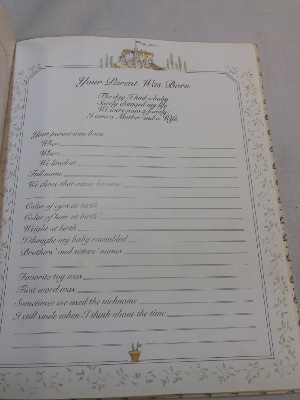 Your Parent Was Born
The day I had a baby
Surely changed my life
We were now a family
I was a Mother and a Wife.
Your parent was born
When
Where
We lived at
Full name
We chose that name because
Color of eyes at birth
Color of hair at birth
Weight at birth
I thought my baby resembled
Brothers' and sisters' names
Favorite toy was
First word was
Sometimes we used the nickname
I still smile when I think about the time
31